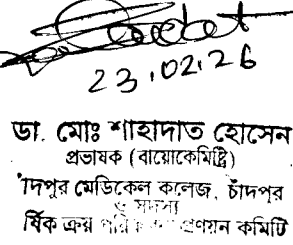 23.02.26
ডা. মোঃ শাহাদাত হোসেন
প্রভাষক (বায়োকেমিষ্ট্রি)
দিপুর মেডিকেল কলেজ, চাঁদপুর
ও সদস্য
র্ষিক ক্রয় প্রণয়ন কমিটি